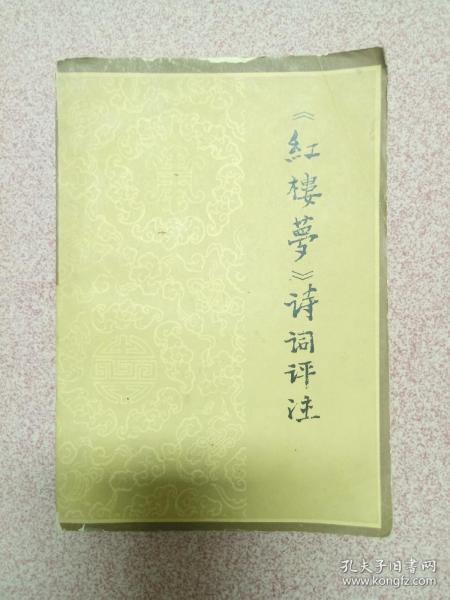 《紅樓夢》诗词评注
孔夫子旧书网
www.kongfz.com